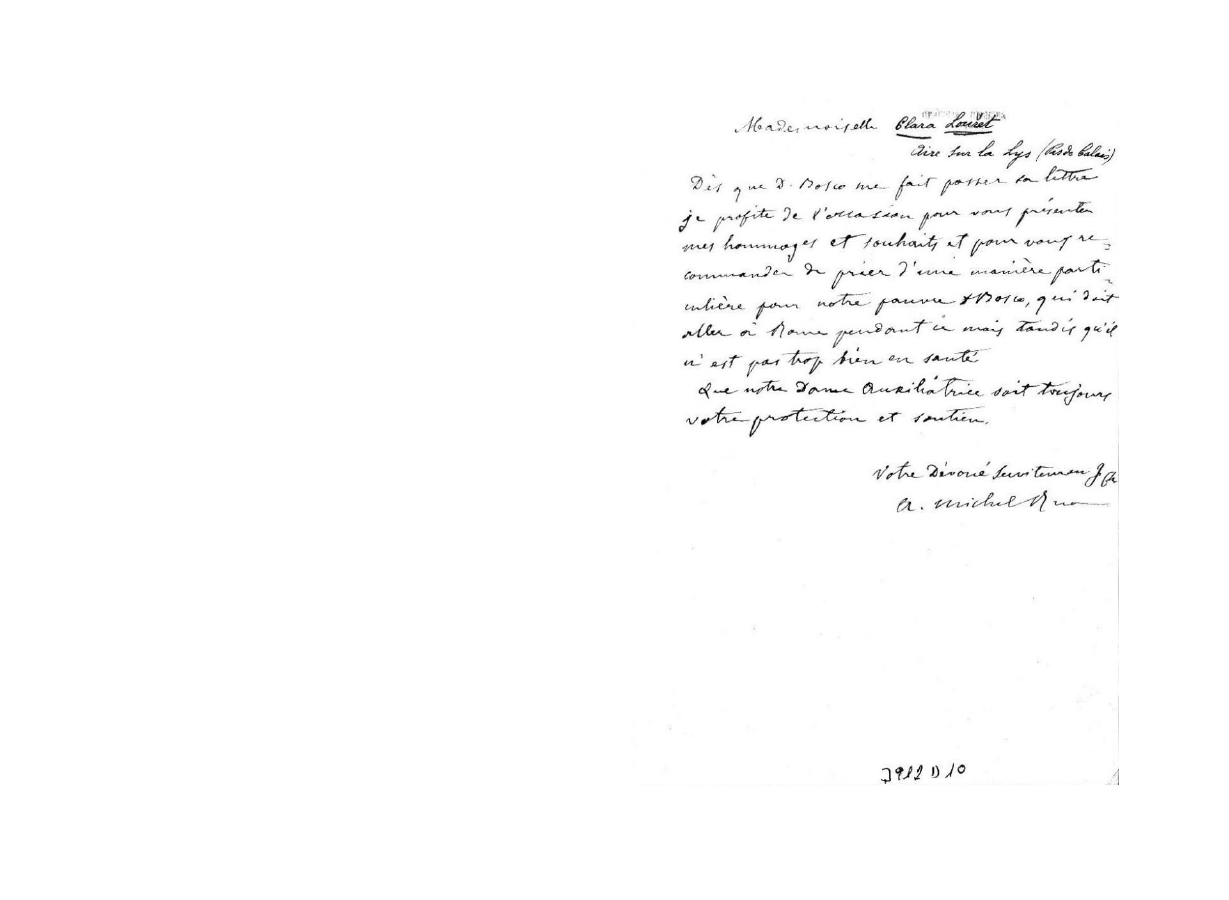 Mademoiselle Clara Louvet
Aire sur la Lys (Pas de Calais)
Dès que D. Bosco me fait passer sa lettre
je profite de l'occasion pour vous présenter
mes hommages et souhaits et pour vous re=
commander de prier d'une manière parti=
culière pour notre pauvre D Bosco, qui doit
aller à Rome pendant ce mois tandis qu'il
n'est pas trop bien en santé
Que notre Dame Auxiliatrice soit toujours
votre protection et soutien.
Votre Dévoué Serviteur en J. Ch
a. Michel Rua
3912 D 10